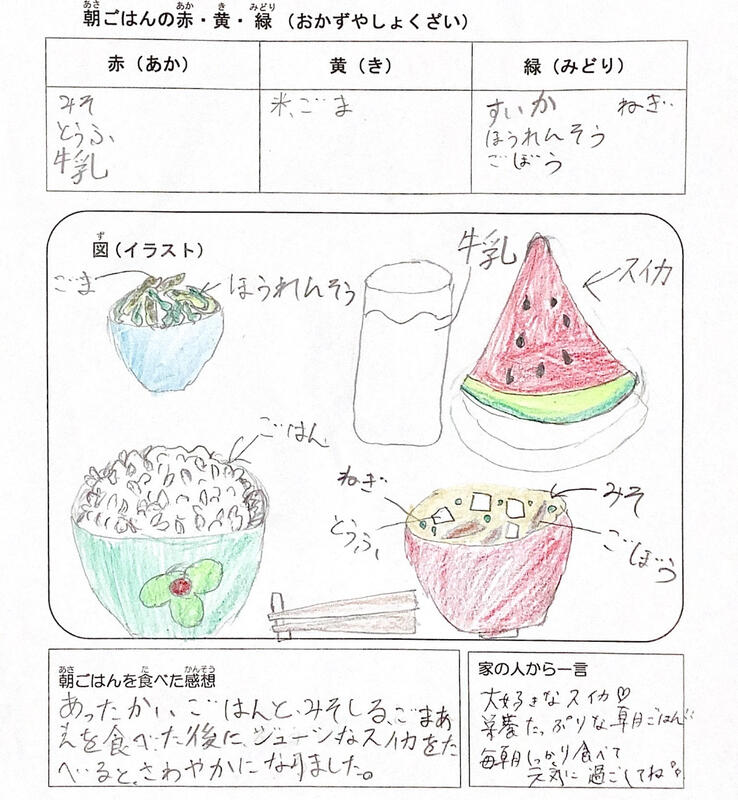 朝ごはんの赤・黄・緑（おかずやしょくざい）
赤（あか） 黄（き） 緑（みどり）
みそ
とうふ
牛乳
米、ごま
すいか ねぎ
ほうれんそう
ごぼう
図（イラスト）
ごま
ほうれんそう
牛乳
スイカ
ごはん
ねぎ
とうふ
みそ
ごぼう
朝ごはんを食べた感想
あったかい、ごはんと、みそしる、ごまあ
えを食べた後に、ジューシなスイカをた
べると、さわやかになりました。
家の人から一言
大好きなスイカ♡
栄養たっぷりな朝ごはん
毎朝しっかり食べて
元気に過ごしてね